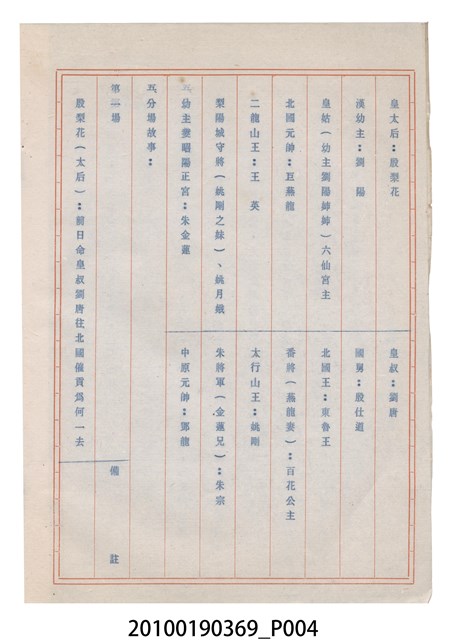 皇太后：殷梨花
皇叔：劉唐
漢幼主：劉　陽
國舅：殷仕道
皇姑（幼主劉陽姉姉）六仙宮主
北國王：東魯王
北國元帥：巨燕龍
番將（燕龍妻）：百花公主
二龍山王：王　英
太行山王：姚剛
梨陽城守將（姚剛之妹）、姚月娥
朱將軍（金蓮兄）：朱宗
幼主妻昭陽正宮：朱金蓮
中原元帥：鄧龍
五、分場故事：
第一場
備註
殷梨花（太后）：前日命皇叔劉唐往北國催貢爲何一去
20100190369_P004